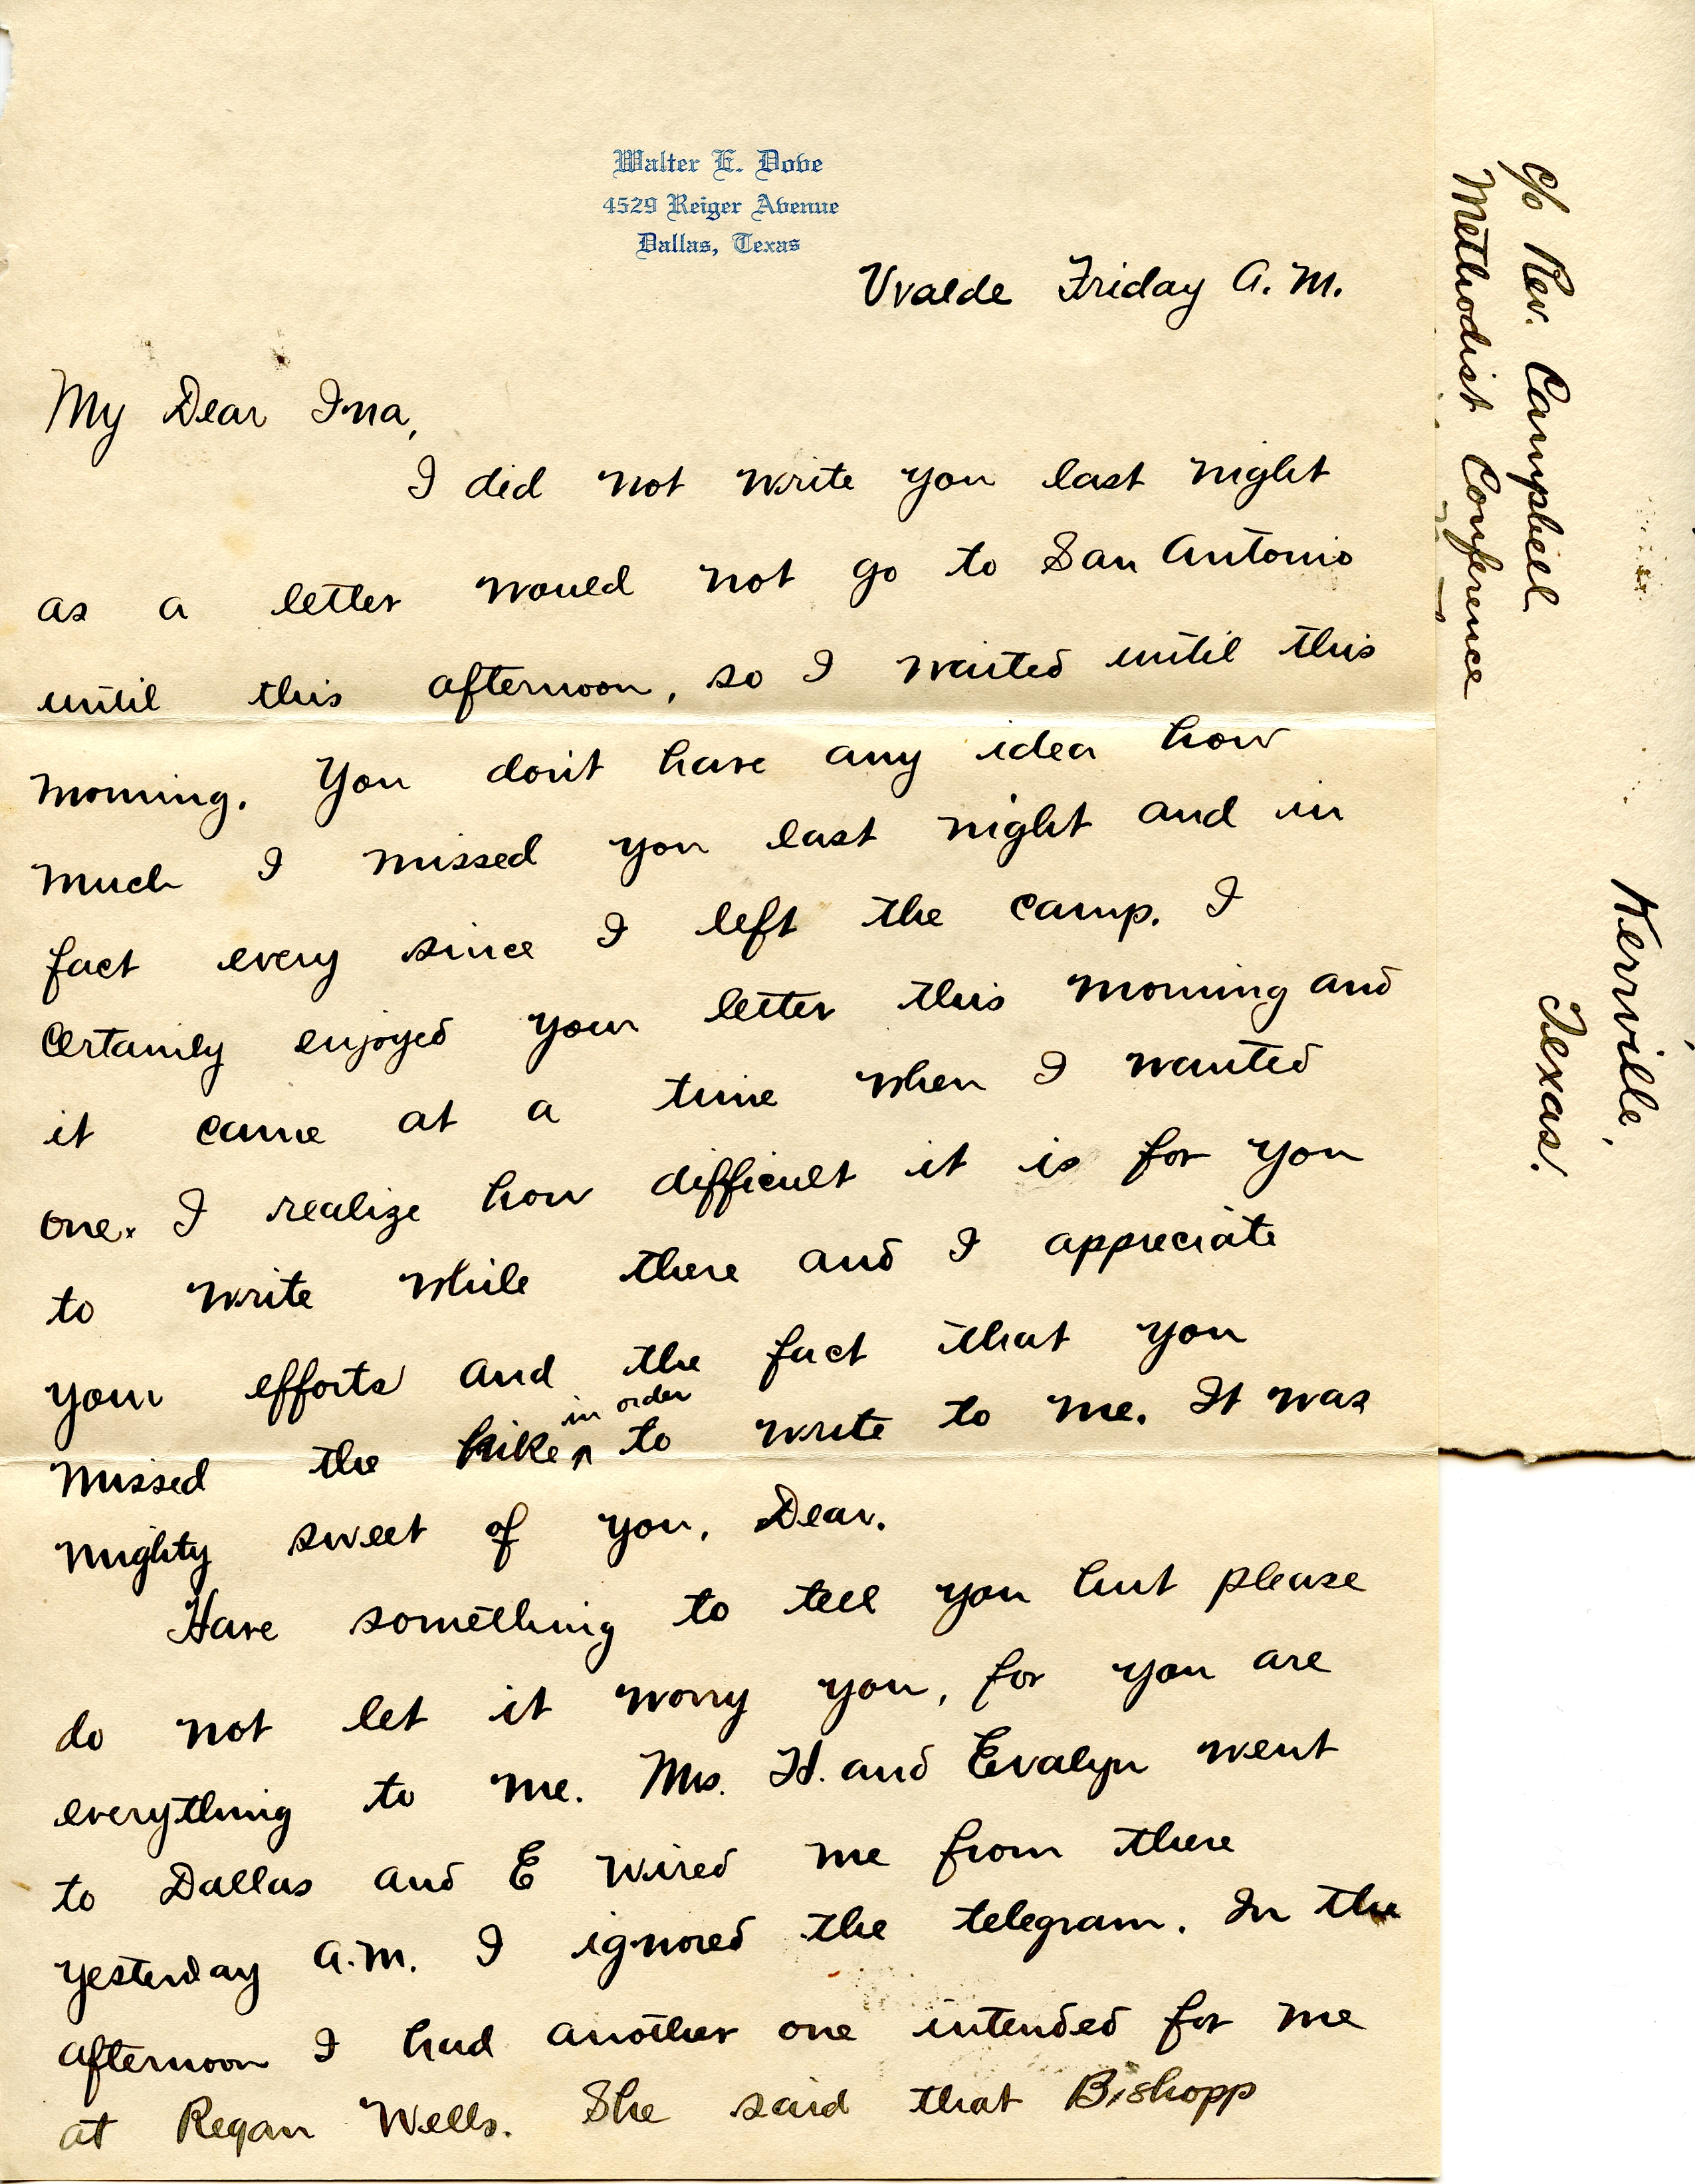 Walter E. Dove
4529 Reiger Avenue
Dallas, Texas
Uvalde Friday A.M.
My Dear Ina,
I did not write you last night
as a letter would not go to San Antonio
until this afternoon, so I waited until this
morning. You don't have any idea how
much I missed you last night and in
fact every since I left the camp. I
certainly enjoyed your letter this morning and
it came at a time when I wanted
one. I realize how difficult it is for you
to write while there and I appreciate
your efforts and the fact that you
missed the hike ^ in order to write to me. It was
mighty sweet of you, Dear.
Have something to tell you but please
do not let it worry you, for you are
everything to me. Mrs. H. and Evalyn went
to Dallas and E wired me from there
yesterday A.M. I ignored the telegram. In the
afternoon I had another one intended for me
at Regan Wells. She said that Bishopp
c/o Rev. Campbell
Methodist Conference
Kerrville,
Texas.